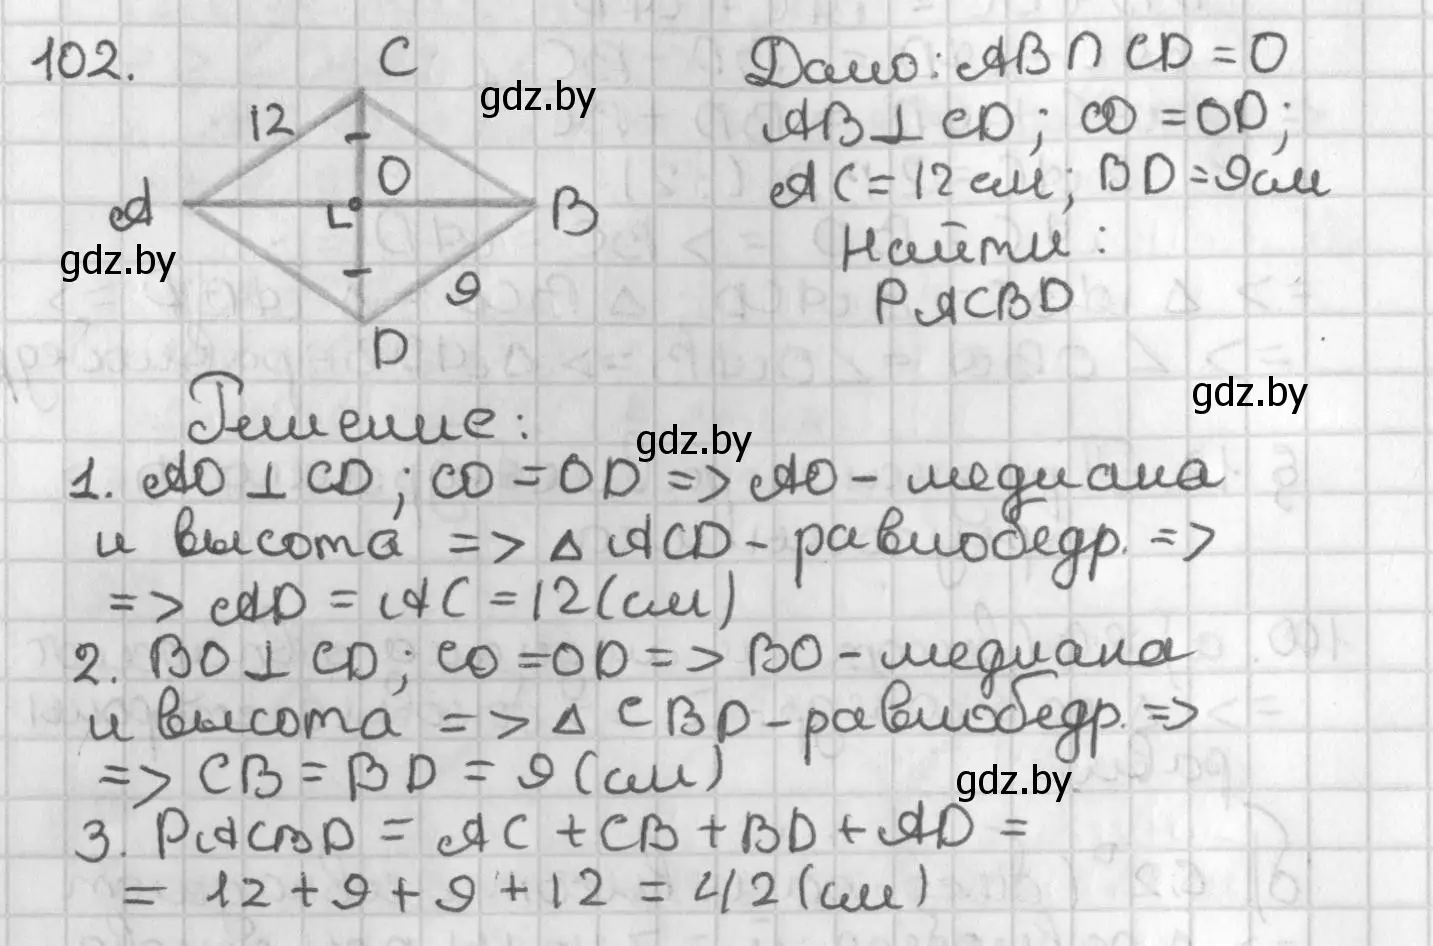 102.
C
Дано: AB ∩ CD = O
gdz.by
12
AB ⊥ CD; CO = OD;
O
AC = 12 см; BD = 9 см
A
B
Найти:
gdz.by
9
PACBD
D
gdz.by
Решение:
gdz.by
1. AO ⊥ CD; CO = OD => AO - медиана
и высота => △ ACD - равнобедр. =>
=> AD = AC = 12 (см)
2. BO ⊥ CD; CO = OD => BO - медиана
и высота => △ CBD - равнобедр. =>
=> CB = BD = 9 (см)
gdz.by
3. PACBD = AC + CB + BD + AD =
= 12 + 9 + 9 + 12 = 42 (см)